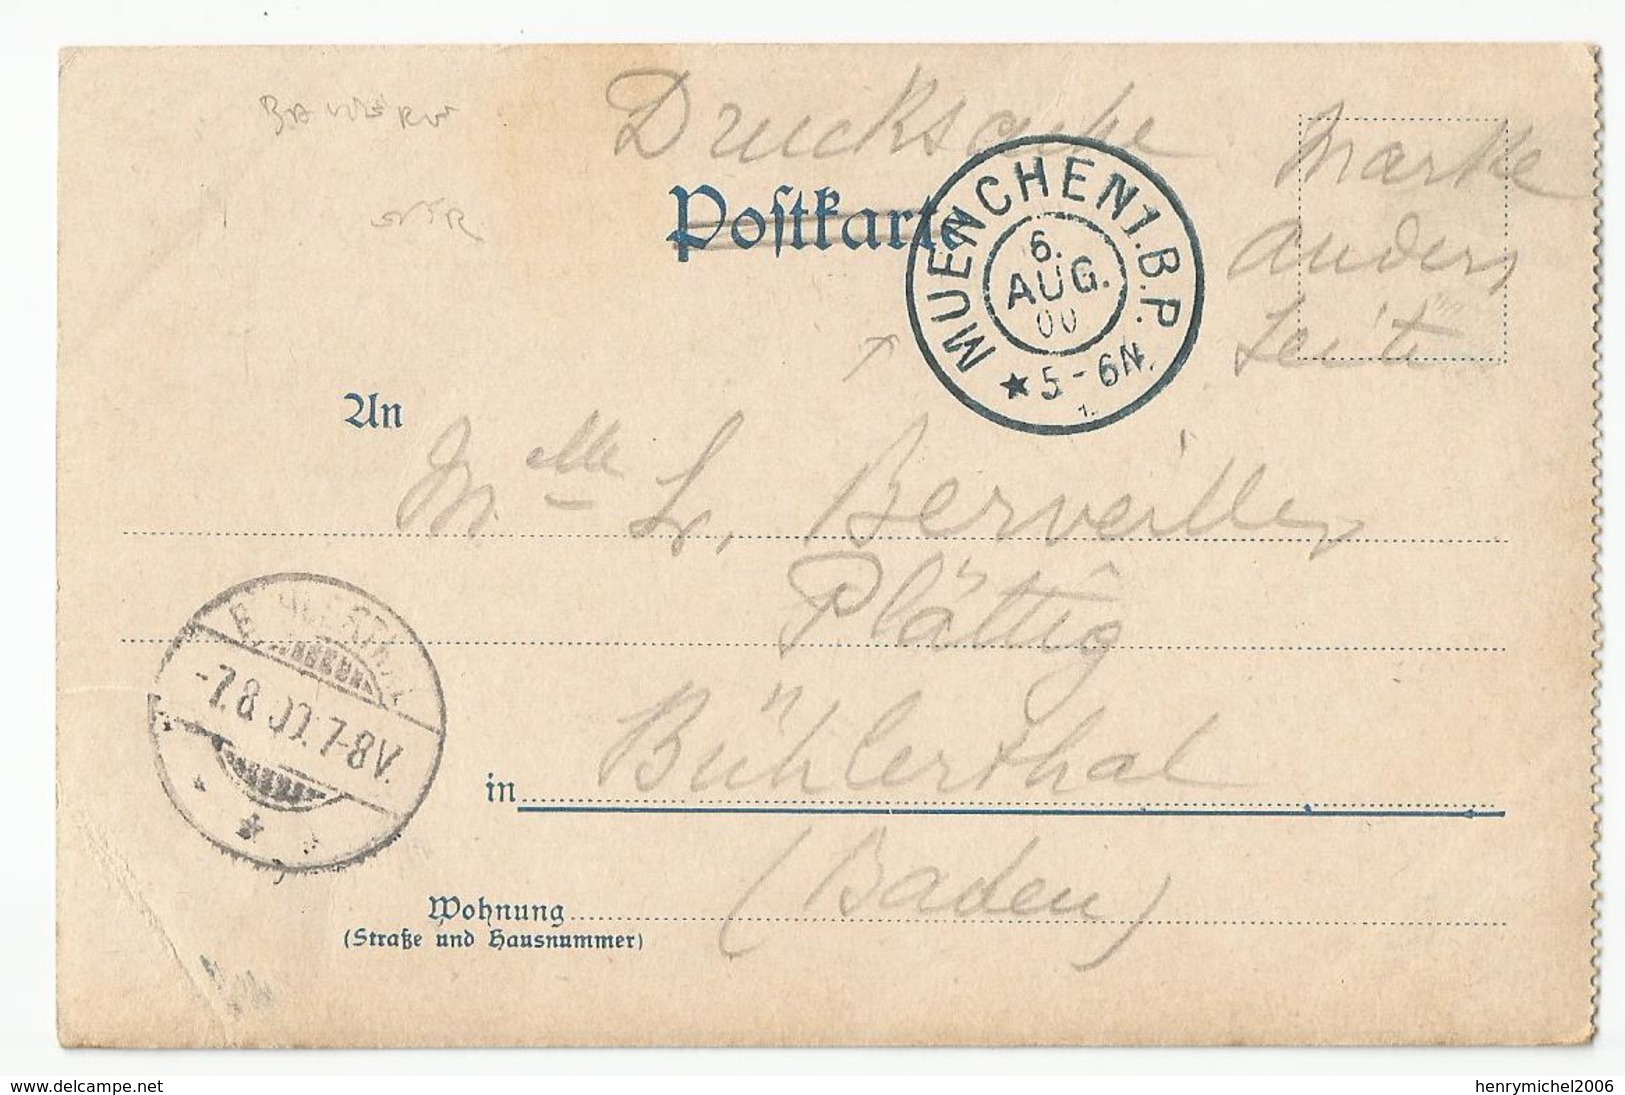 BAVIERE
Drucksache
Marke
anders
Seite
Postkarte
MUENCHEN 1.B.P.
6.
AUG.
00
★ 5-6N.
An
Mlle L. Berveiller
Plättig
-7.8.00.7-8V.
in Bühlerthal
(Baden)
Wohnung
(Straße und Hausnummer)
www.delcampe.net
henrymichel2006